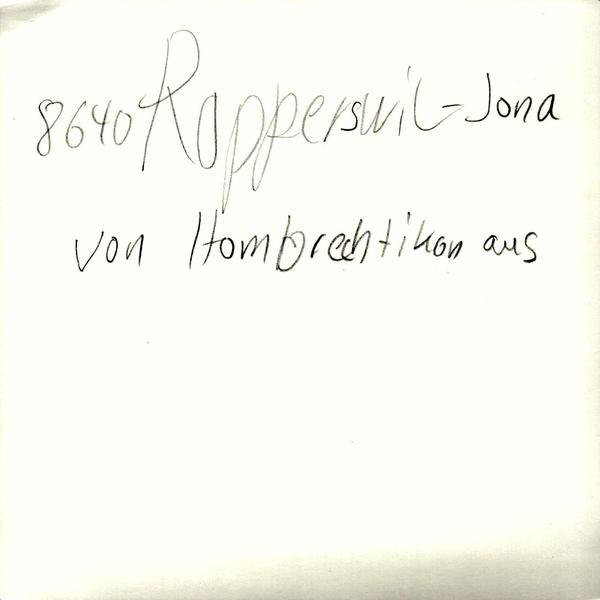 8640 Rapperswil-Jona
von Hombrechtikon aus